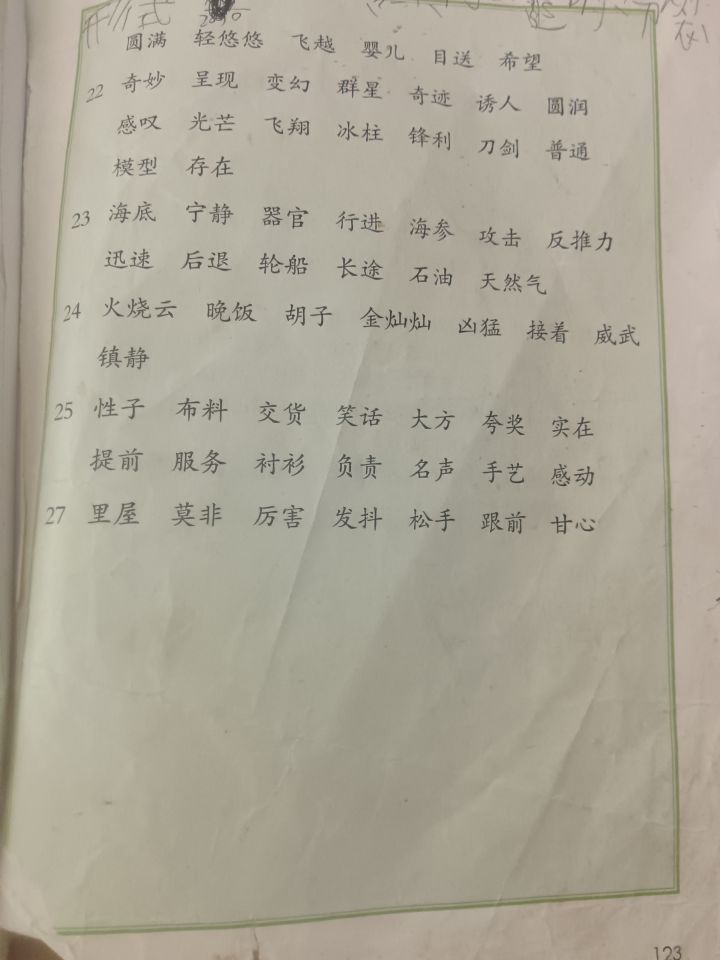 圆满 轻悠悠 飞越 婴儿 目送 希望
22 奇妙 呈现 变幻 群星 奇迹 诱人 圆润
感叹 光芒 飞翔 冰柱 锋利 刀剑 普通
模型 存在
23 海底 宁静 器官 行进 海参 攻击 反推力
迅速 后退 轮船 长途 石油 天然气
24 火烧云 晚饭 胡子 金灿灿 凶猛 接着 威武
镇静
25 性子 布料 交货 笑话 大方 夸奖 实在
提前 服务 衬衫 负责 名声 手艺 感动
27 里屋 莫非 厉害 发抖 松手 跟前 甘心
123